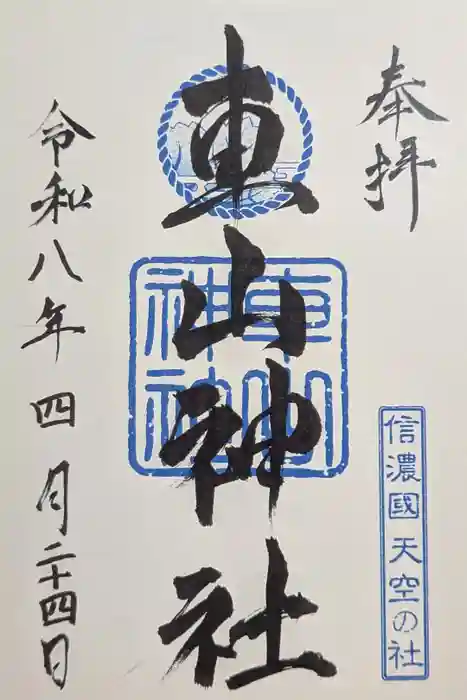 奉拝
信濃國 天空の社
東山神社
東山神社
令和八年 四月二十四日